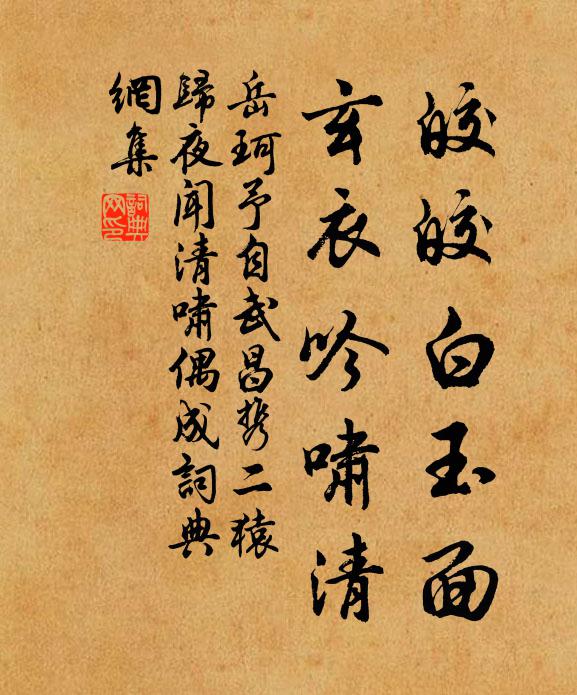 皎皎白玉面
玄衣吟嘯清
岳珂予自武昌携二猿
歸夜闻清嘯偶成詞典
網集
詞典
网印